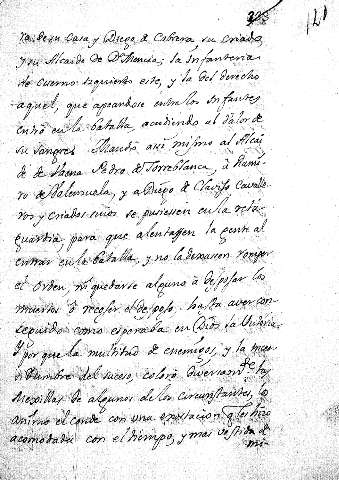 323 121
ra de su Casa y Diego de Cabrera su criado,
y su Alcaide de Dª Mencia; la Infanteria
de cuerno izquierdo este, y la del derecho
aquel, que apeandose entre los Infantes
entró en la batalla, acudiendo al Valor de
su sangre. Mandó asi mismo al Alcai
de de Baena Pedro de Torreblanca, à Rami
ro de Valenzuela, y a Diego de Clavijo Cavalle
ros y criados suios se pusiesen en la reta
guardia, para que alentassen la gente al
entrar en la batalla, y no la dexassen romper
el Orden, ni quedarse alguno à despojar los
muertos ò recojer el despojo, hasta aver con
seguido como esperaba en Dios la Victoria.
Y por que la multitud de enemigos, y la ince
rtidumbre del suceso, coloró diversamte las
Mexillas de algunos de los circunstantes, los
animó el conde con una oracion q les hizo
acomodada con el tiempo, y mas vestida de